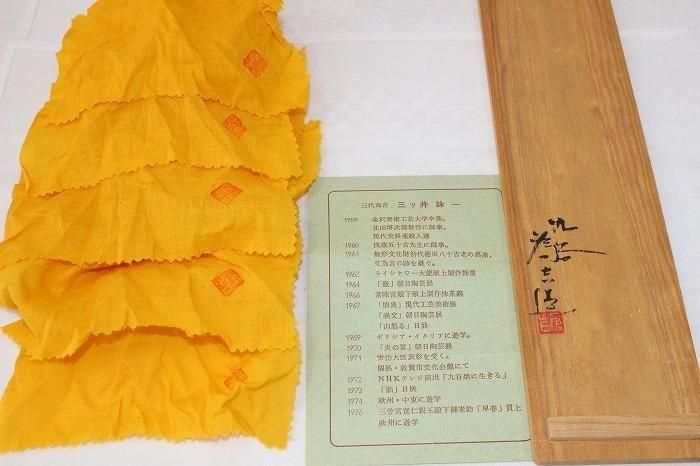 三代為吉 三ッ井詠一
1959 金沢美術工芸大学卒業。
北出塔次郎教授に師事。
現代美展連続入選
1960 浅蔵五十吉先生に師事。
1961 無形文化財初代徳田八十吉老の薫陶、
父為吉の跡を継ぐ。
1962 ライシャワー大使献上制作飾皿
1964 「壺」朝日陶芸展
1966 常陸宮殿下献上制作抹茶碗
1967 「情炎」現代工芸美術展
「渦文」朝日陶芸展
「山怒る」日展
1969 ギリシア・イタリアに遊学。
1970 「炎の宴」朝日陶芸展
1971 労仂大臣表彰を受く。
個展・敦賀市文化会館にて
1972 NHKテレビ演出「九谷焼に生きる」
1973 「胎」日展
1974 欧州・中東に遊学
1976 三笠宮寛仁親王殿下御来訪「早春」買上
欧州に遊学
九谷
為吉造